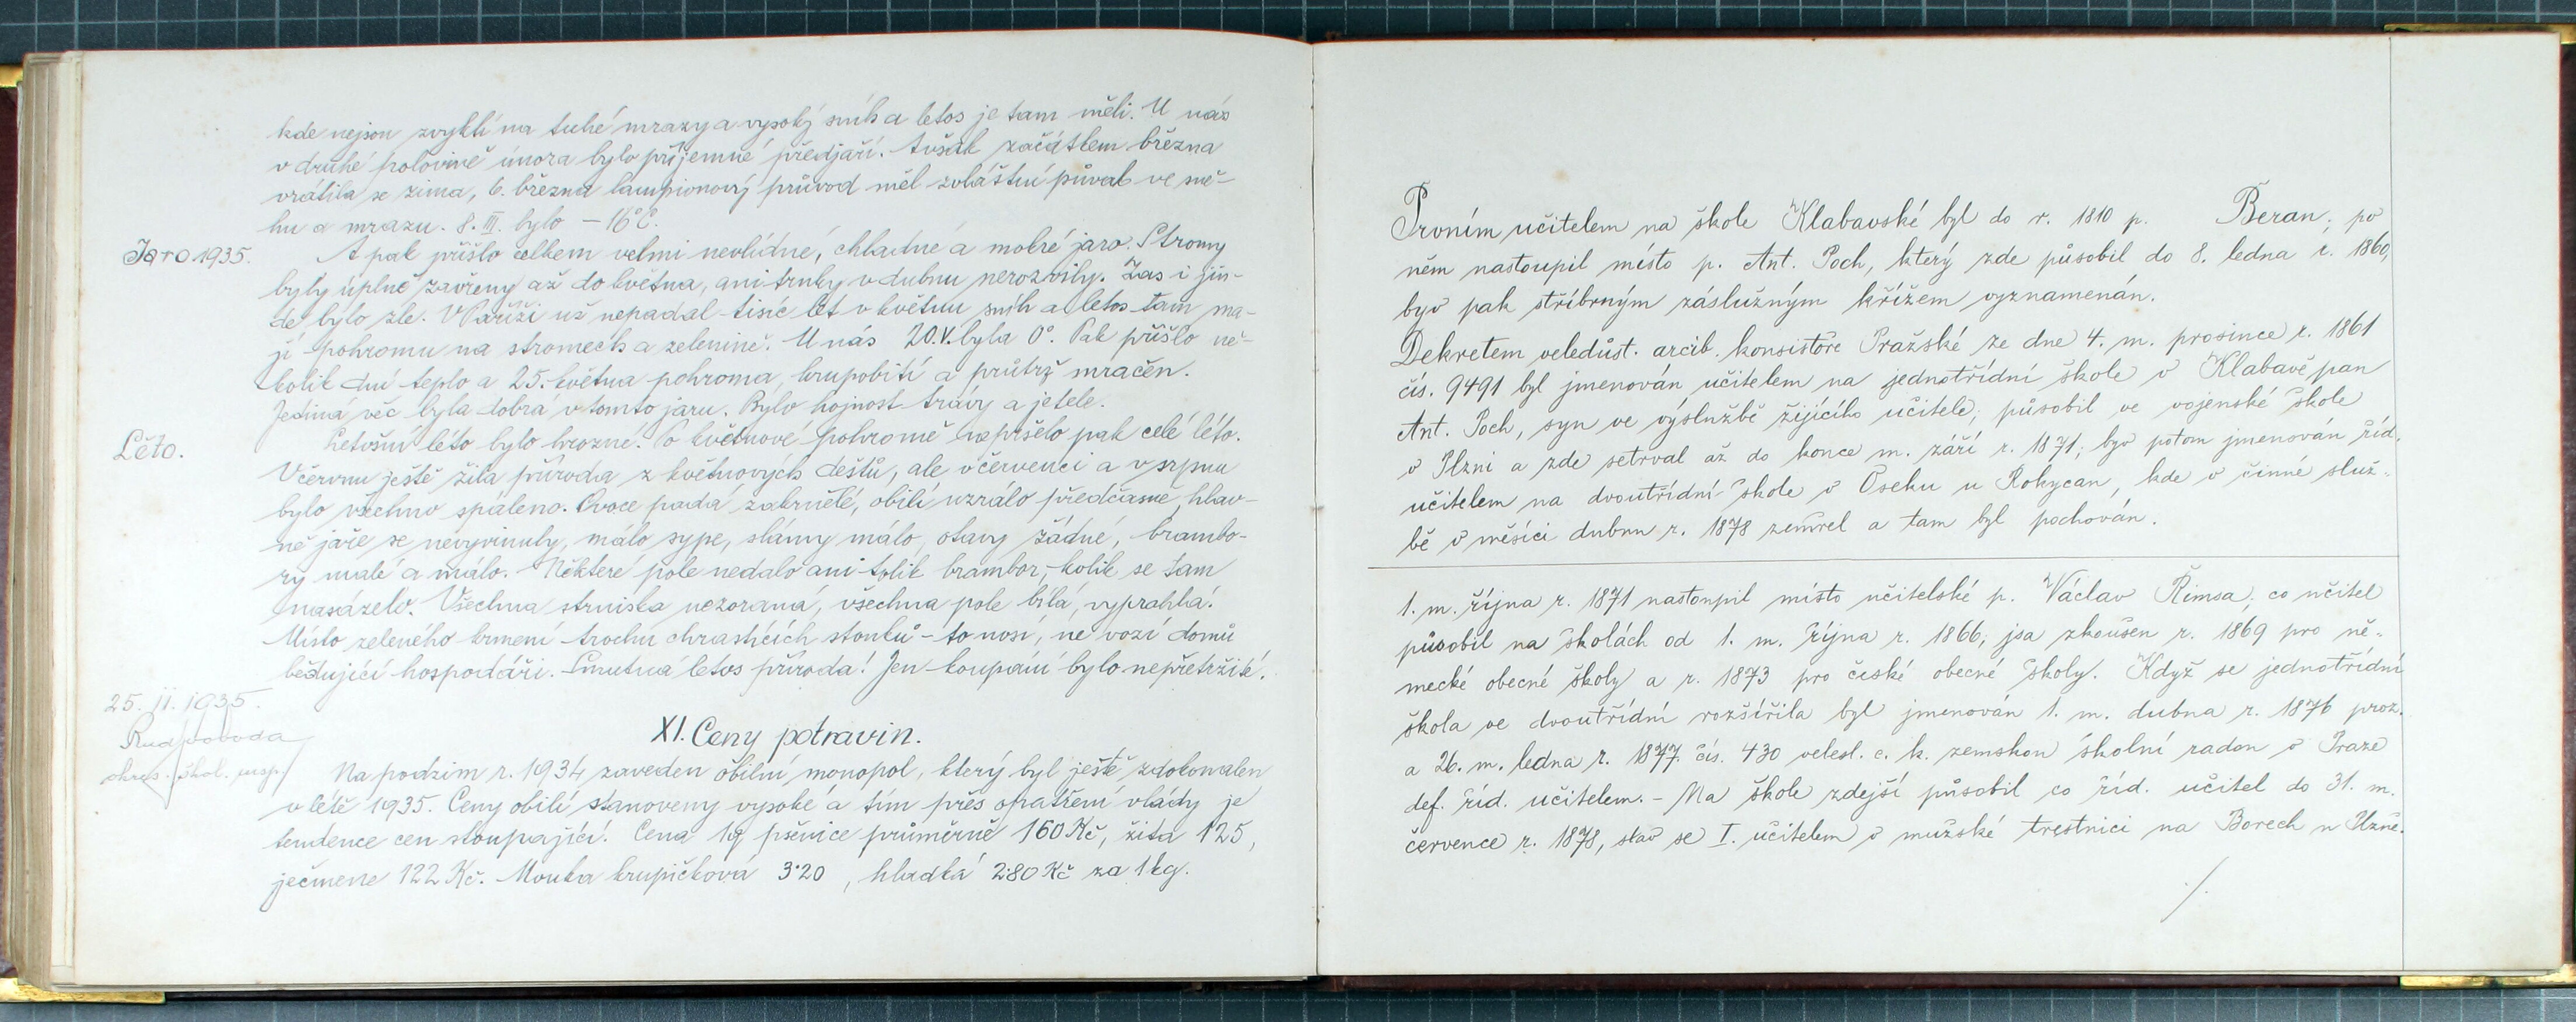 kde nejsou zvyklí na tuhé mrazy a vysoký sníh a letos je tam měli. U nás
v druhé polovině února bylo příjemné předjaří. Avšak začátkem března
vrátila se zima, 6. března lampionový průvod měl zvláštní půvab ve sně-
hu a mrazu. 8. III. bylo – 16°C.
Jaro 1935.
A pak přišlo celkem velmi nevlídné, chladné a mokré jaro. Stromy
byly úplně zavřeny až do května, ani trnky v dubnu nerozvily. Zas i jin-
de bylo zle. V Paříži už nepadal tisíc let v květnu sníh a letos tam ma-
jí pohromu na stromech a zelenině. U nás 20.V. byla 0°. Pak přišlo ně-
kolik dní teplo a 25. května pohroma, krupobití a průtrž mračen.
Jediná věc byla dobrá v tomto jaru. Bylo hojnost trávy a jetele.
Léto.
Letošní léto bylo hrozné. Po květnové pohromě nepršelo pak celé léto.
V červnu ještě žila příroda z květnových dešťů, ale v červenci a v srpnu
bylo všechno spáleno. Ovoce padá zakrnělé, obilí uzrálo předčasně, hlav-
ně jaře se nevyvinuly, málo sype, slámy málo, otavy žádné, brambo-
ry malé a málo. Některé pole nedalo ani tolik brambor, kolik se tam
nasázelo. Všechna strniska nezoraná, všechna pole bílá, vyprahlá.
Místo zeleného krmení trochu chrastících stonků – to nosí, ne vozí domů
bědující hospodáři. Smutná letos příroda! Jen koupání bylo nepřetržité.
25. II. 1935.
Rud
okres. škol. insp.
XI. Ceny potravin.
Na podzim r. 1934 zaveden obilní monopol, který byl ještě zdokonalen
v létě 1935. Ceny obilí stanoveny vysoké a tím přes opatření vlády je
tendence cen stoupající. Cena 1q pšenice průměrně 160 Kč, žita 125,
ječmene 122 Kč. Mouka krupičková 3·20, hladká 2·80 Kč za 1 kg.
Prvním učitelem na škole Klabavské byl do r. 1810 p. Beran; po
něm nastoupil místo p. Ant. Poch, který zde působil do 8. ledna r. 1860,
byv pak stříbrným záslužným křížem vyznamenán.
Dekretem veledůst. arcib. konsistoře Pražské ze dne 4. m. prosince r. 1861
čís. 9491 byl jmenován učitelem na jednotřídní škole v Klabavě pan
Ant. Poch, syn ve výslužbě žijícího učitele; působil ve vojenské škole
v Plzni a zde setrval až do konce m. září r. 1871; byv potom jmenován říd.
učitelem na dvoutřídní škole v Oseku u Rokycan, kde v činné služ-
bě v měsíci dubnu r. 1878 zemřel a tam byl pochován.
1. m. října r. 1871 nastoupil místo učitelské p. Václav Řimsa, co učitel
působil na školách od 1. m. října r. 1866; jsa zkoušen r. 1869 pro ně-
mecké obecné školy a r. 1873 pro české obecné školy. Když se jednotřídní
škola ve dvoutřídní rozšířila byl jmenován 1. m. dubna r. 1876 proz.
a 26. m. ledna r. 1877 čís. 430 velesl. c. k. zemskou školní radou v Praze
def. říd. učitelem. – Na škole zdejší působil co říd. učitel do 31. m.
července r. 1878, stav se I. učitelem v mužské trestnici na Borech u Plzně.
./.